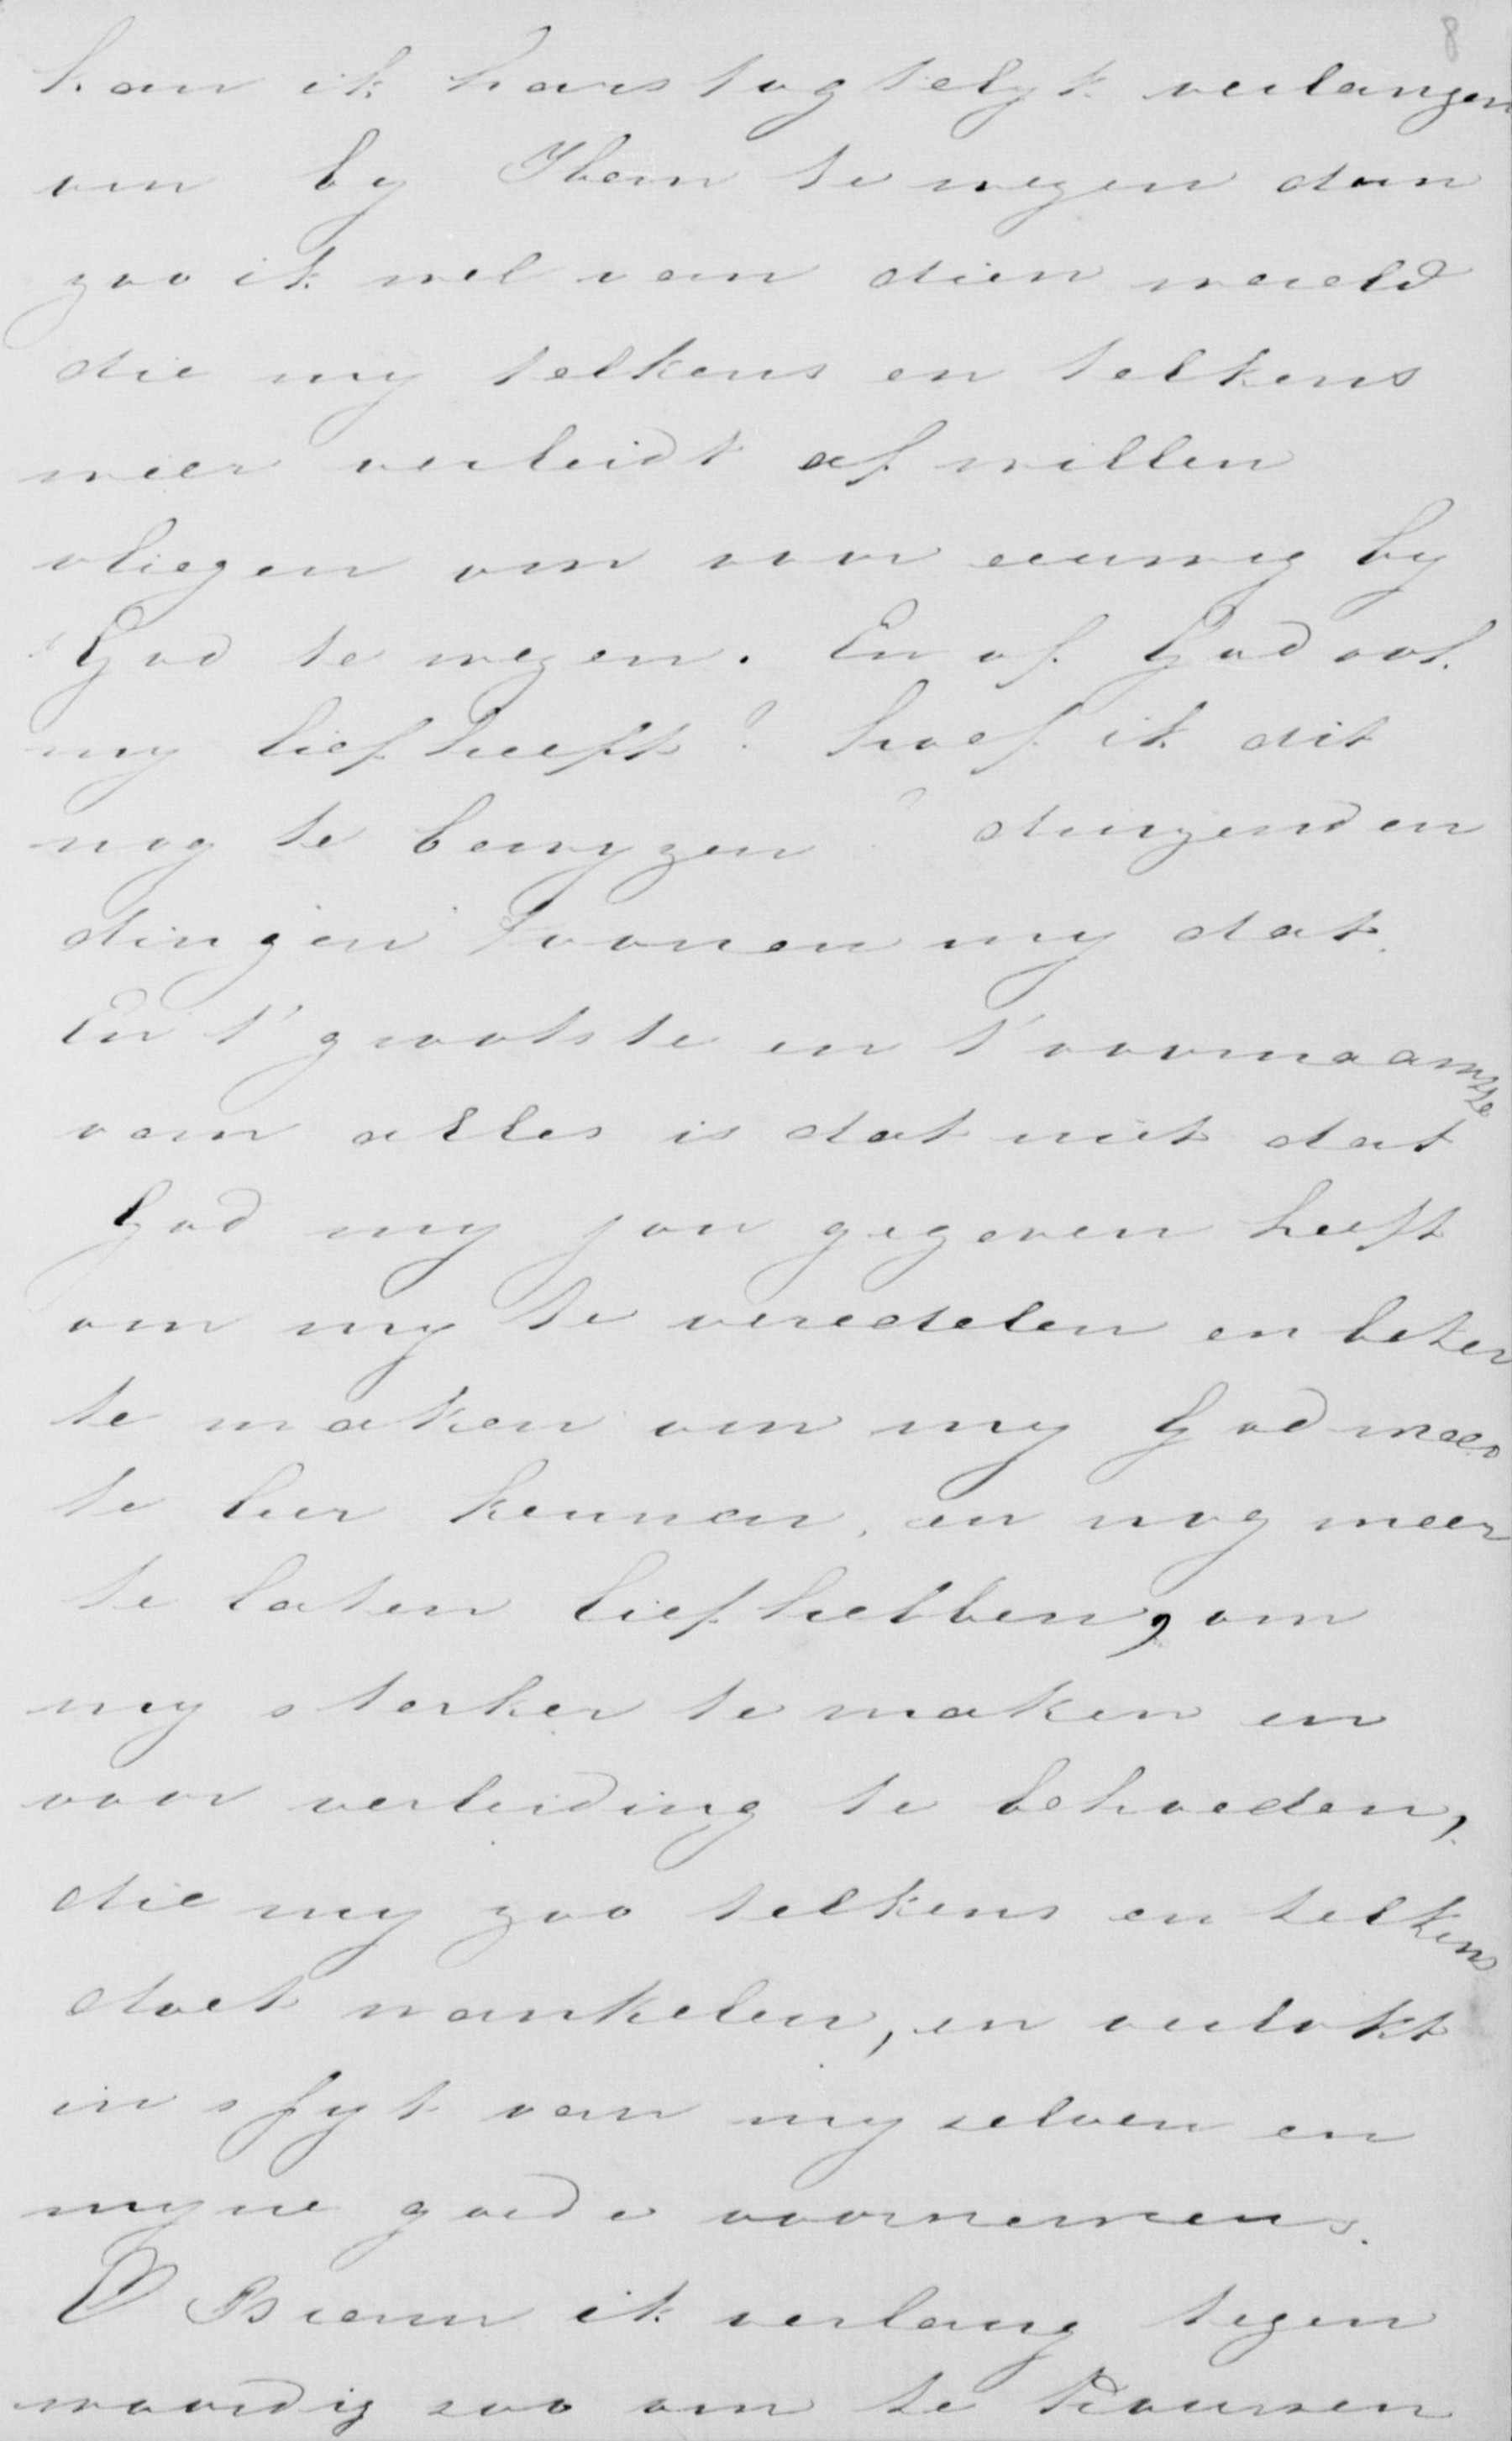 8
kan ik harstogtelyk verlangen
om by Hem te wezen dan
zoo ik wel van dien wereld
die my telkens en telkens
weer verleidt af willen
vliegen om voor eeuwig by
God te wezen. En of God ook
my lief heeft? hoef ik dit
nog te bewyzen? duizenden
dingen toonen my dat.
En t' grootste en t' voornaamste
van alles is dat niet dat
God my jou gegeven heeft
om my te veredelen en beter
te maken om my God meer
te leer kennen, en nog meer
te laten lief hebben, om
my sterker te maken en
voor verleiding te behoeden,
die my zoo telkens en telkens
doet wankelen, en verlokt
in spyt van my selven en
myne goede voornemens.
O Bram ik verlang tegen
woordig zoo om te trouwen